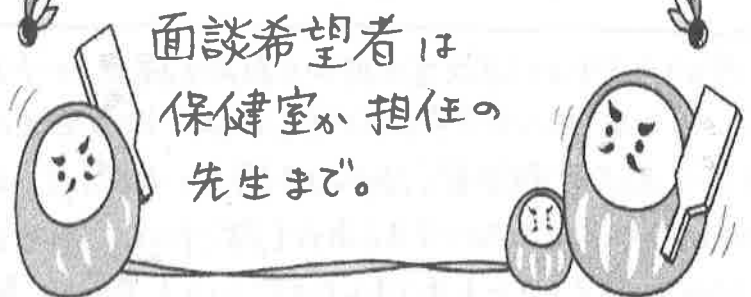 面談希望者は
保健室か担任の
先生まで。